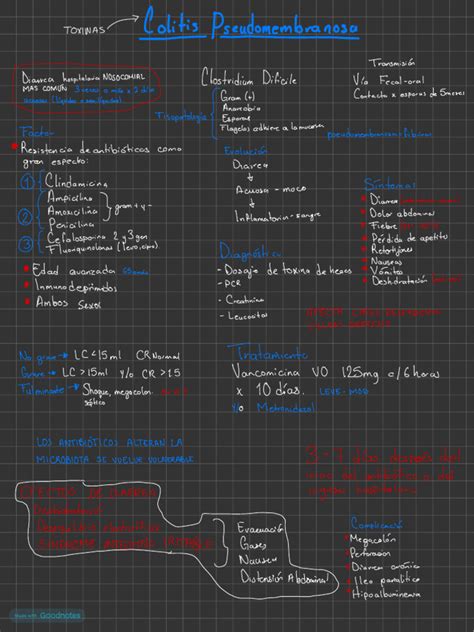 TOXINAS
Colitis Pseudomembranosa
Diarrea hospitalaria NOSOCOMIAL
MAS COMÚN 3 veces o más x 2 días
Clostridium Dificile
Gram (+)
Anaerobio
Esporas
Flagelos adhiere a la mucosa
Tisopatología
pseudomembranas: fibrina
Transmisión
Vía Fecal-oral
Contacto x esporas de 5 meses
Factor
Resistencia de antibióticos como
gran espectro:
1 Clindamicina
2 Ampicilina
Amoxicilina
Penicilina
gram + y -
3 Cefalosporina 2 y 3 gen
Fluoroquinolonas
Edad avanzada 65 años
Inmunodeprimidos
Ambos sexos
Evolución
Diarrea
↓
Acuosa - moco
↓
Inflamatorio - sangre
Síntomas
Diarrea
Dolor abdominal
Fiebre
Pérdida de apetito
Retortijones
Nauseas
Vómito
Deshidratación
Diagnóstico
- Dosaje de toxina de heces
- PCR
- Creatinina
- Leucocitos
No grave → LC <15ml CR Normal
Grave → LC >15ml y/o CR >1.5
Fulminante → Shoque, megacolon
séptico
Tratamiento
Vancomicina VO 125mg c/6 horas
x 10 días. LEVE-MOD
y/o Metronidazol
LOS ANTIBIÓTICOS ALTERAN LA
MICROBIOTA SE VUELVE VULNERABLE
3 - 7 días después del
EFECTOS DE
Evacuación
Gases
Nauseas
Distensión Abdominal
Complicación
Megacolón
Perforación
Diarrea crónica
Ileo paralítico
Hipoalbuminemia
Made with Goodnotes